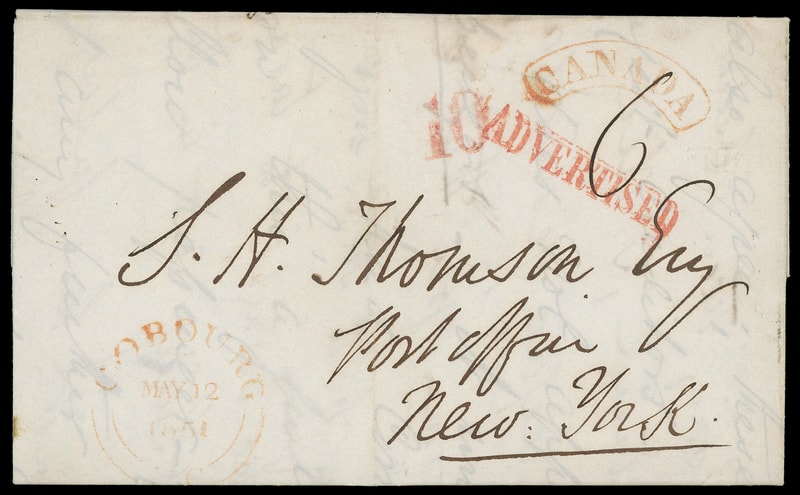 CANADA
10
ADVERTISED
6
S. H. Thomson Esq
Post Office
New. York.
COBOURG
MAY 12
1851